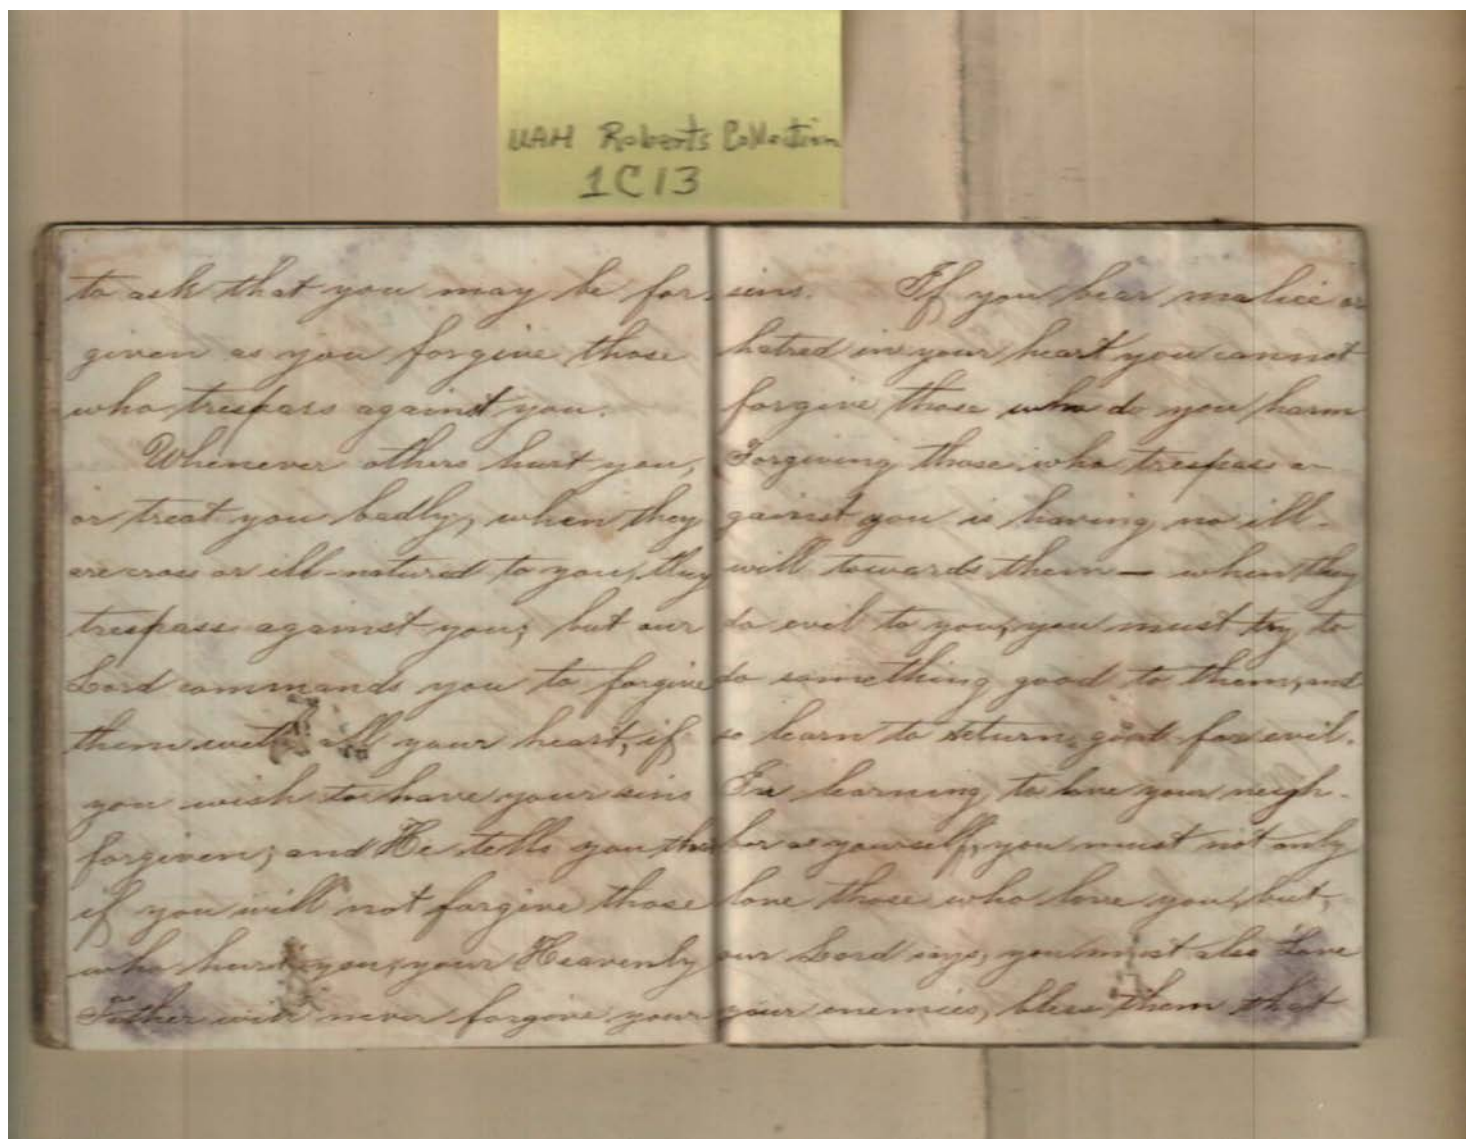 UAH Roberts Collection
1C13
to ask that you may be for-
given as you forgive those
who trespass against you.
Whenever others hurt you,
or treat you badly, when they
are cross or ill-natured to you, they
trespass against you; but our
Lord commands you to forgive
them with all your heart, if
you wish to have your sins
forgiven; and He tells you that
if you will not forgive those
who hurt you, your Heavenly
Father will never forgive your
sins. If you bear malice or
hatred in your heart you cannot
forgive those who do you harm
Forgiving those who trespass a-
gainst you is having no ill-
will towards them — when they
do evil to you, you must try to
do something good to them, and
so learn to return good for evil.
In learning to love your neigh-
bor as yourself, you must not only
love those who love you, but,
our Lord says, you must also love
your enemies, bless them that